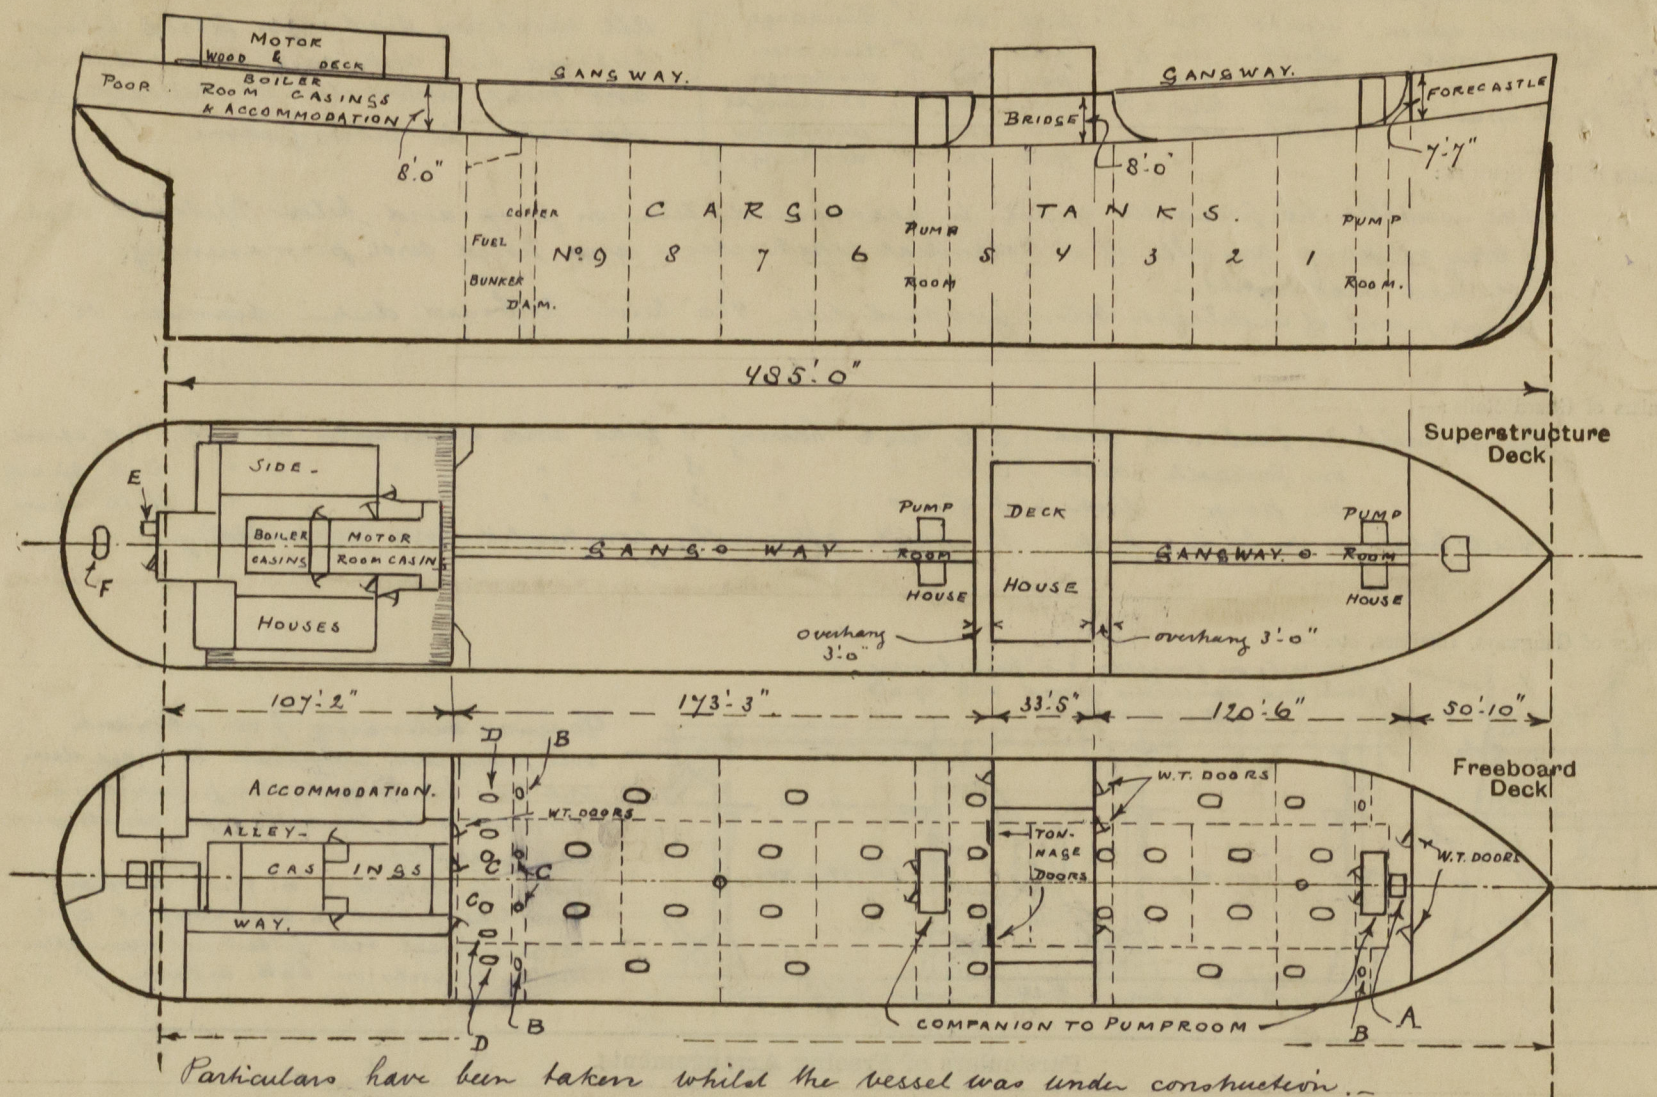 MOTOR
WOOD & DECK
POOP.
BOILER
ROOM CASINGS
& ACCOMMODATION
GANGWAY.
BRIDGE
GANGWAY.
FORECASTLE
8'.0"
8'-0"
7'-7"
CARGO TANKS.
COFFER
DAM.
FUEL
BUNKER
No. 9 8 7 6 5 4 3 2 1
PUMP
ROOM
PUMP
ROOM.
485'.0"
Superstructure
Deck
E
F
SIDE-
HOUSES
BOILER
CASINGS
MOTOR
ROOM CASIN
GANGWAY
PUMP
ROOM
HOUSE
DECK
HOUSE
GANGWAY.
PUMP
ROOM
HOUSE
overhang
3'.0"
overhang 3'.0"
107'-2" 173'-3" 33'.5" 120'-6" 50'.10"
Freeboard
Deck
D B
ACCOMMODATION.
ALLEY-
CASINGS
WAY.
W.T. DOORS
C
C
C
TON-
NAGE
DOORS
W.T. DOORS
W.T. DOORS
D B
COMPANION TO PUMPROOM
B A
Particulars have been taken whilst the vessel was under construction.-